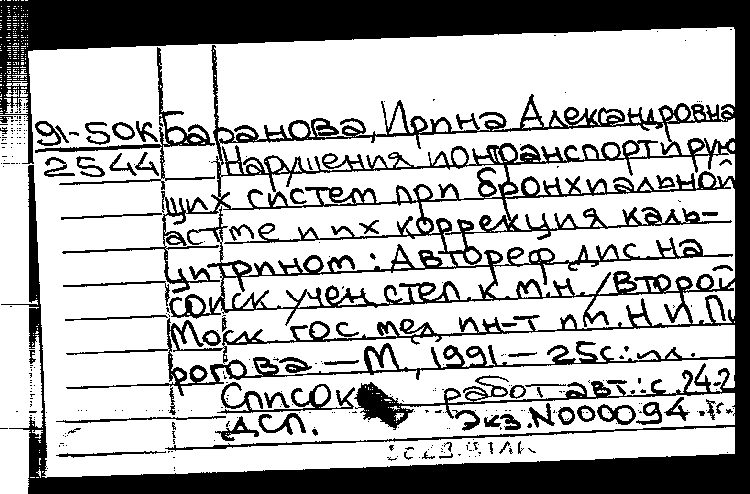 91-50К Баранова, Ирина Александровна
2544 Нарушения ионтранспортирую
щих систем при бронхиальной
астме и их коррекция каль-
цитрином : Автореф. дис. на
соиск. учен. степ. к.м.н. / Второй
Моск. гос. мед. ин-т им. Н.И. Пи
рогова — М., 1991. — 25с.: ил.
Список работ авт.: с. 24-2
ДСП. Экз. N000094.